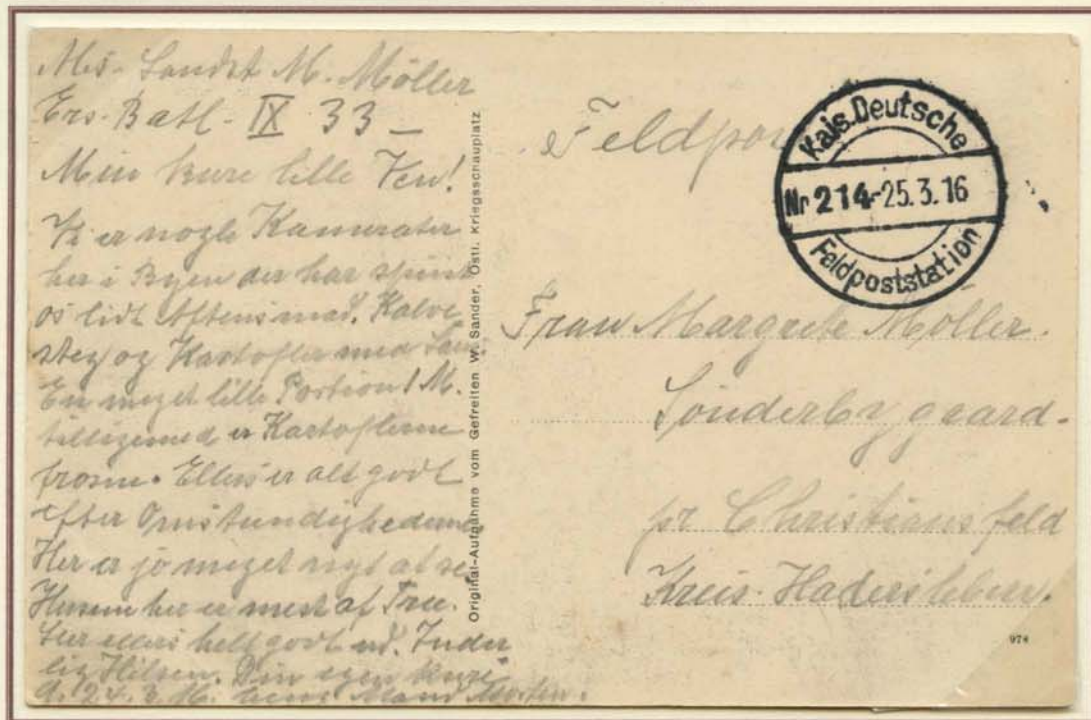 Abs. Landst M. Möller
Ers. Batl. IX 33 –
Min kære lille Ven!
Vi er nogle Kamerater
her i Byen der har spist
os lidt Aftensmad. Kalve
steg og Kartofler med
En meget lille Portion! M.
tilligemed er Kartoflerne
frosne. Ellers er alt godt
efter Omstændighederne
Her er jo meget nyt at se
Husene her er mest af Træ.
Ser ellers helt godt ud. Inder
lig Hilsen. Din egen kære
d. 24. 3. 16. Mand Morten.
Original-Aufnahme vom Gefreiten W. Sander, Östl. Kriegsschauplatz
Feldpost
Kais. Deutsche
Nr 214 - 25.3.16
Feldpoststation
Frau Margrete Möller.
Sönderbygaard.
pr Christiansfeld
Kreis Hadersleben.
974